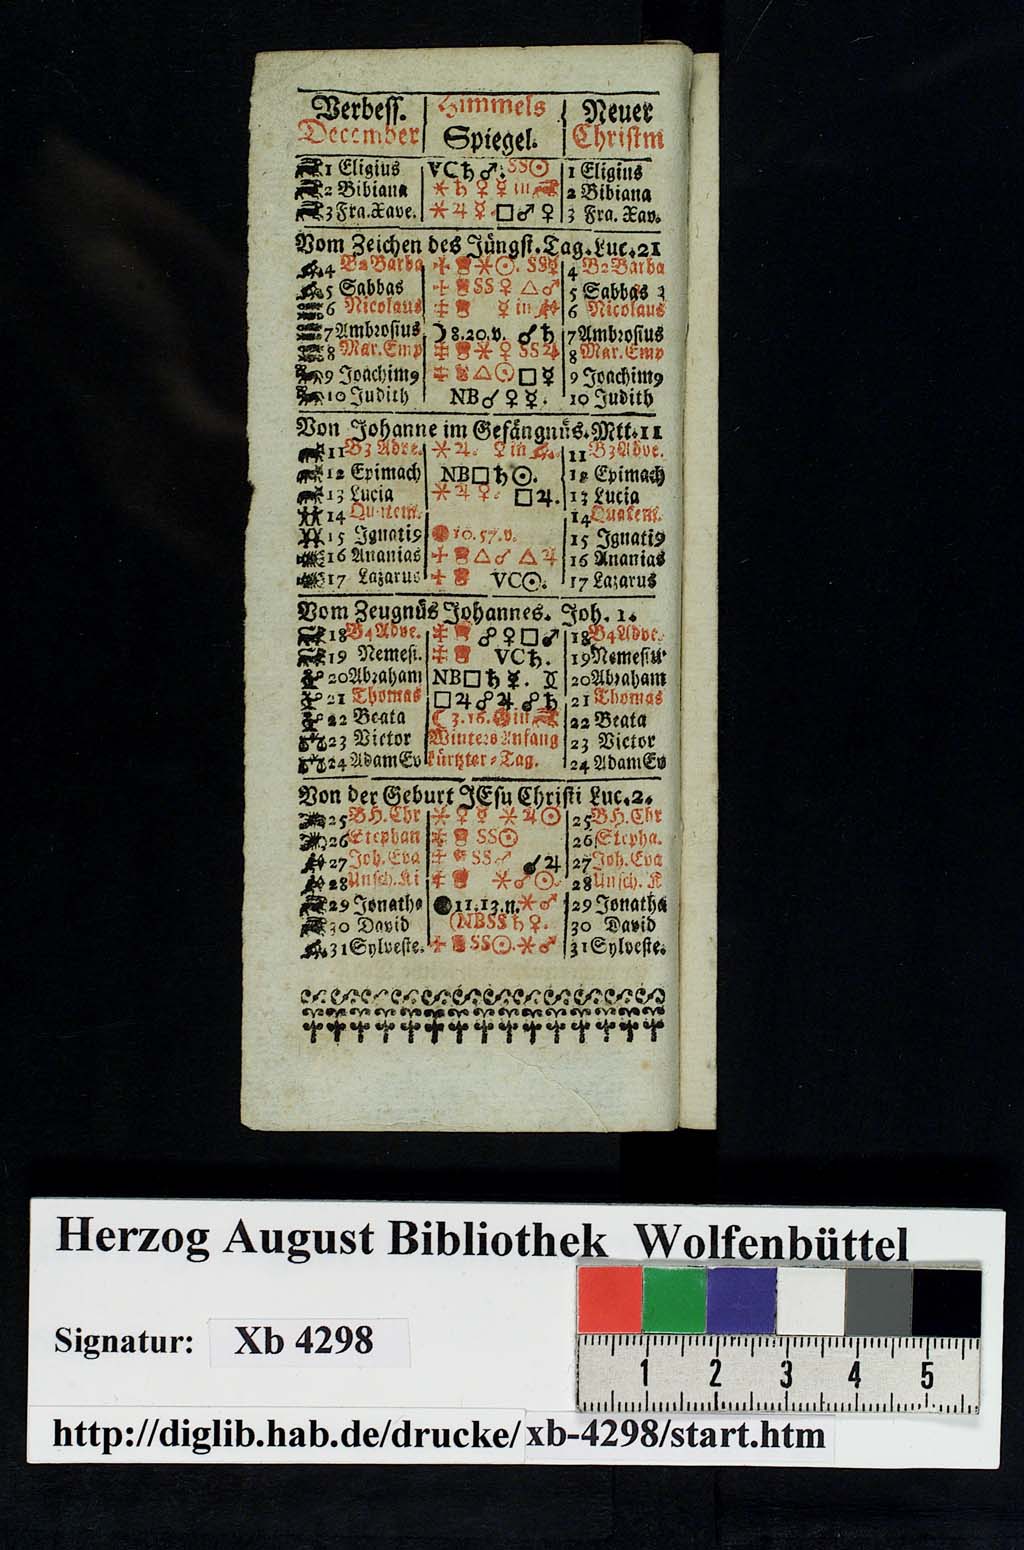 Verbess. Himmels Neuer
December Spiegel. Christm
1 Eligius V C ♄ ♂. SS☉ 1 Eligius
2 Bibiana ⚹ ♄ ♀ ☿ in 2 Bibiana
3 Fra.Xave. ⚹ ♃ ☿. □ ♂ ♀ 3 Fra. Xav.
Vom Zeichen des Jüngst.Tag.Luc.21
4 B2 Barba ⚹ ☉. SS☿ 4 B2 Barba
5 Sabbas SS ♀ △ ♂ 5 Sabbas
6 Nicolaus ☿ in 6 Nicolaus
7 Ambrosius ☽ 8.20.v. ☌ ♄ 7 Ambrosius
8 Mar.Emp ⚹ ♀ SS ♃ 8 Mar.Emp
9 Joachim9 △ ☉ □ ☿ 9 Joachim9
10 Judith NB ☌ ♀ ☿. 10 Judith
Von Johanne im Gefängnüs.Mtt.11
11 B3 Adve. ⚹ ♃. ♀ in 11 B3 Adve.
12 Epimach NB □ ♄ ☉. 12 Epimach
13 Lucia ⚹ ♃ ♀. □ ♃. 13 Lucia
14 Quatem. 14 Quatem.
15 Ignati9 10.57.v. 15 Ignati9
16 Ananias △ ♂ △ ♃ 16 Ananias
17 Lazarus VC☉. 17 Lazarus
Vom Zeugnüs Johannes. Joh. 1.
18 B4 Adve. ☍ ♀ □ ♂ 18 B4 Adve.
19 Nemesi. VC♄. 19 Nemesiu
20 Abraham NB □ ♄ ☿. 20 Abraham
21 Thomas □ ♃ ☍ ♃ ☍ ♄ 21 Thomas
22 Beata ☾ 3.16. ☉ in 22 Beata
23 Victor Winters Anfang 23 Victor
24 AdamEv kürtzter-Tag. 24 AdamEv
Von der Geburt JEsu Christi Luc.2.
25 B H. Chr ⚹ ♀ ☿ ⚹ ♃ ☉ 25 B H. Chr
26 Stephan SS☉ 26 Stepha.
27 Joh. Eva SS ♂ ☌ ♃ 27 Joh. Eva
28 Unsch. Ki ⚹ ♂ ☉. 28 Unsch. K
29 Jonatha 11.13.n. ⚹ ♂ 29 Jonatha
30 David (NBSS ♄ ♀. 30 David
31 Sylveste. SS☉. ⚹ ♂ 31 Sylveste.
Herzog August Bibliothek Wolfenbüttel
Signatur: Xb 4298
1 2 3 4 5
http://diglib.hab.de/drucke/xb-4298/start.htm